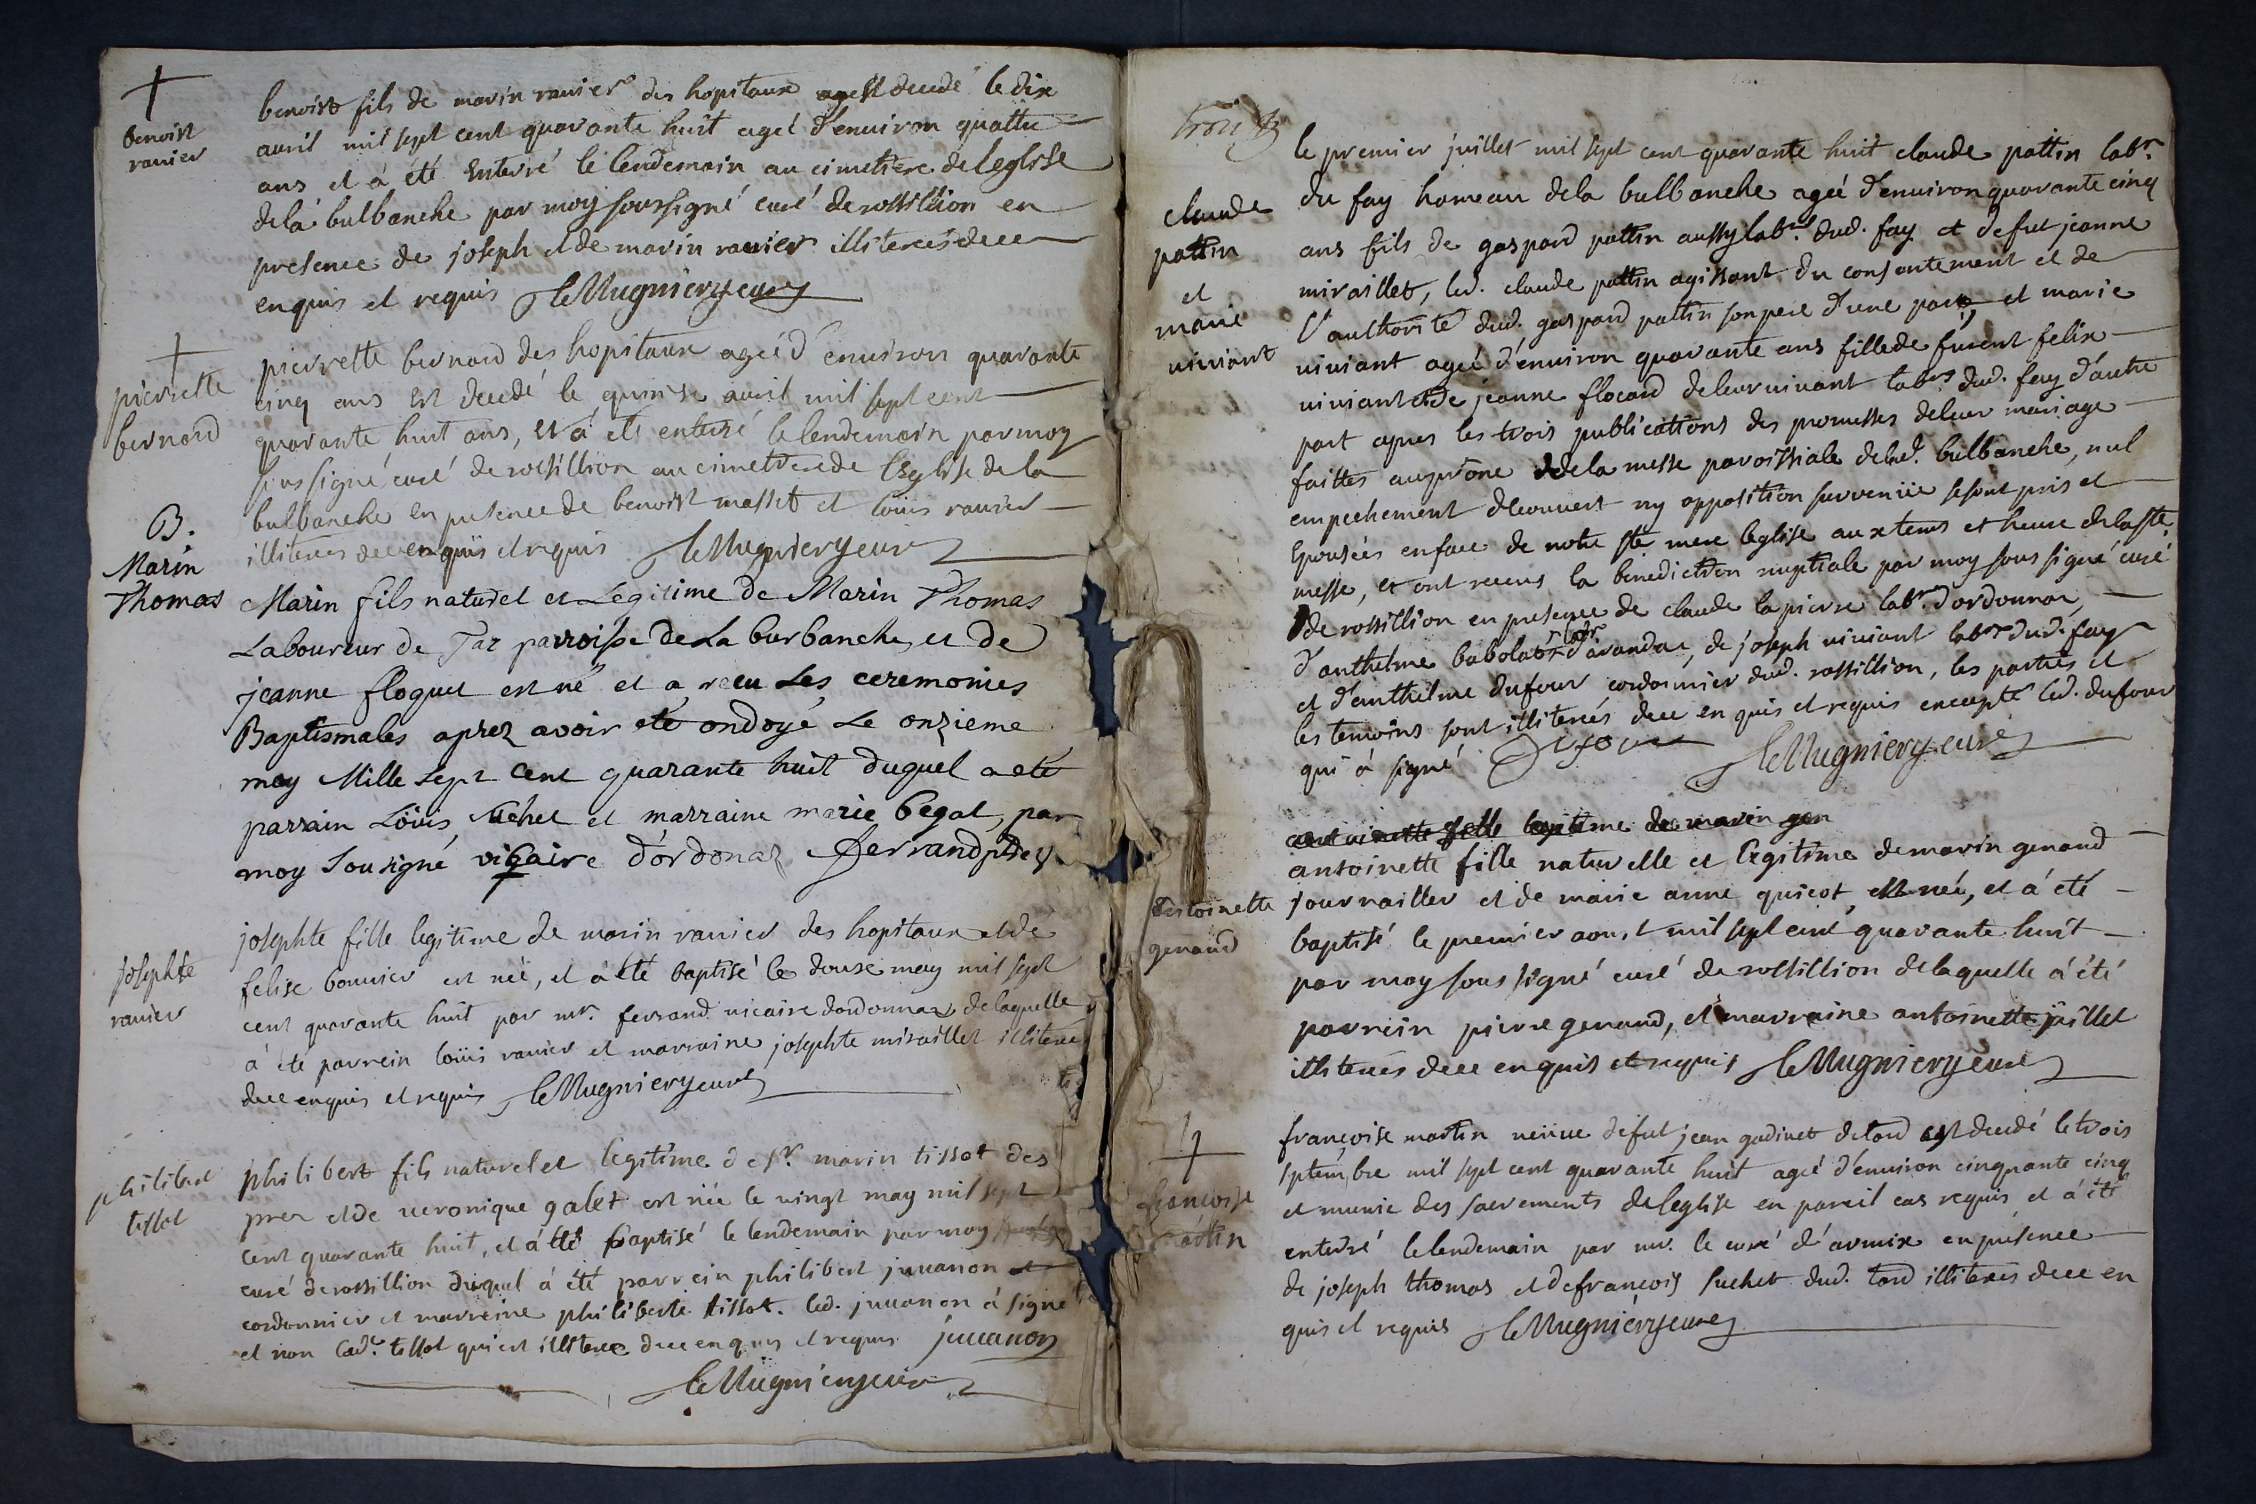 benoist ravier
benoist fils de marin ravier des hopitaux est decedé le dix
avril mil sept cent quarante huit ageé d'environ quattre
ans et à été enterré le lendemain au cimetiere de l'eglise
de la bulbanche par moy soussigné curé de rossillion en
presence de joseph et de marin ravier illiterés de ce
enquis et requis Le Mugniery curé
pierrette bernard
pierrette bernard des hopitaux ageé d'environ quarante
cinq ans est decedé le quinse avril mil sept cent
quarante huit ans, et à eté enterré le lendemain par moy
sous signé curé de rossillion au cimettiere de l'eglise de la
bulbanche en presence de benoist masset et loüis ravier
illiterés de ce enquis et requis Le Mugniery curé
B.
Marin
Thomas
Marin fils naturel et Legitime de Marin Thomas
Laboureur de Taz parroisse de La burbanche, et de
jeanne floquet est né et a recu Les ceremonies
Baptismales aprez avoir eté ondoyé Le onzieme
may Mille sept Cent quarante huit duquel a eté
parrain Loüis suchet et marraine marie begat, par
moy Sousigné vicaire d'ordonaz ferrand ptre
josephte
ravier
josephte fille legitime de marin ravier des hopitaux et de
felise bouvier est née, et à été baptisé le douse may mil sept
cent quarante huit par mr. ferrand vicaire dordonnaz de laquelle
à été parrein loüis ravier et marraine josephte miraillet illiterés
de ce enquis et requis Le Mugniery curé
philibert
tissot
philibert fils naturel et legitime de sr. marin tissot des
prez et de veronique galet est née le vingt may mil sept
cent quarante huit, et à été baptisé le lendemain par moy
curé de rossillion duquel à été parrein philibert juvanon
cordonnier et marreine philiberte tissot. led. juvanon à signé
et non lad. tissot qui est illiterée de ce enquis et requis juvanon
Le Mugniery curé
claude
pattin
et
marie
viviant
le premier juillet mil sept cent quarante huit claude pattin labr.
du fay hameau de la bulbanche ageé d'environ quarante cinq
ans fils de gaspard pattin aussy labr. dud. fay et de fut jeanne
miraillet, led. claude pattin agissant du consentement et de
l'authorité dud. gaspard pattin son pere d'une part, et marie
viviant ageé d'environ quarante ans fille de furent felix
viviant et de jeanne flocard de leur vivant labrs dud. fay d'autre
part apres les trois publications des promesses de leur mariage
faittes au prône de la messe paroissiale de lad. bulbanche, nul
empechement decouvert ny opposition survenüe se sont pris et
epousées en face de notre ste mere l'eglise aux tems et heure de la ste
messe, et ont receus la benediction nuptiale par moy sous signé curé
de rossillion en presence de claude lapierre labr. d'ordonnaz,
d'anthelme babolat labr. d'arandaz, de joseph viviant labr. dud. fay
et d'anthelme dufour cordonnier dud. rossillion, les parties et
les temoins sont illiterés de ce enquis et requis excepté led. dufour
qui à signé Dufour Le Mugniery curé
antoinette fille legitime de marin gen
antoinette
genand
antoinette fille naturelle et legitime de marin genand
journallier et de marie anne quicot, est née, et à été
baptisé le premier aoust mil sept cent quarante huit
par moy sous signé curé de rossillion de laquelle à été
parrein pierre genand, et marraine antoinette juillet
illiterés de ce enquis et requis Le Mugniery curé
françoise
martin
françoise martin veüve de fut jean gadinet de tard est decedé le trois
septembre mil sept cent quarante huit ageé d'environ cinquante cinq
et munie des sacrements de l'eglise en pareil cas requis et à été
enterré le lendemain par mr. le curé d'armix en présence
de joseph thomas et de françois suchet dud. tard illiterés de ce en
quis et requis Le Mugniery curé